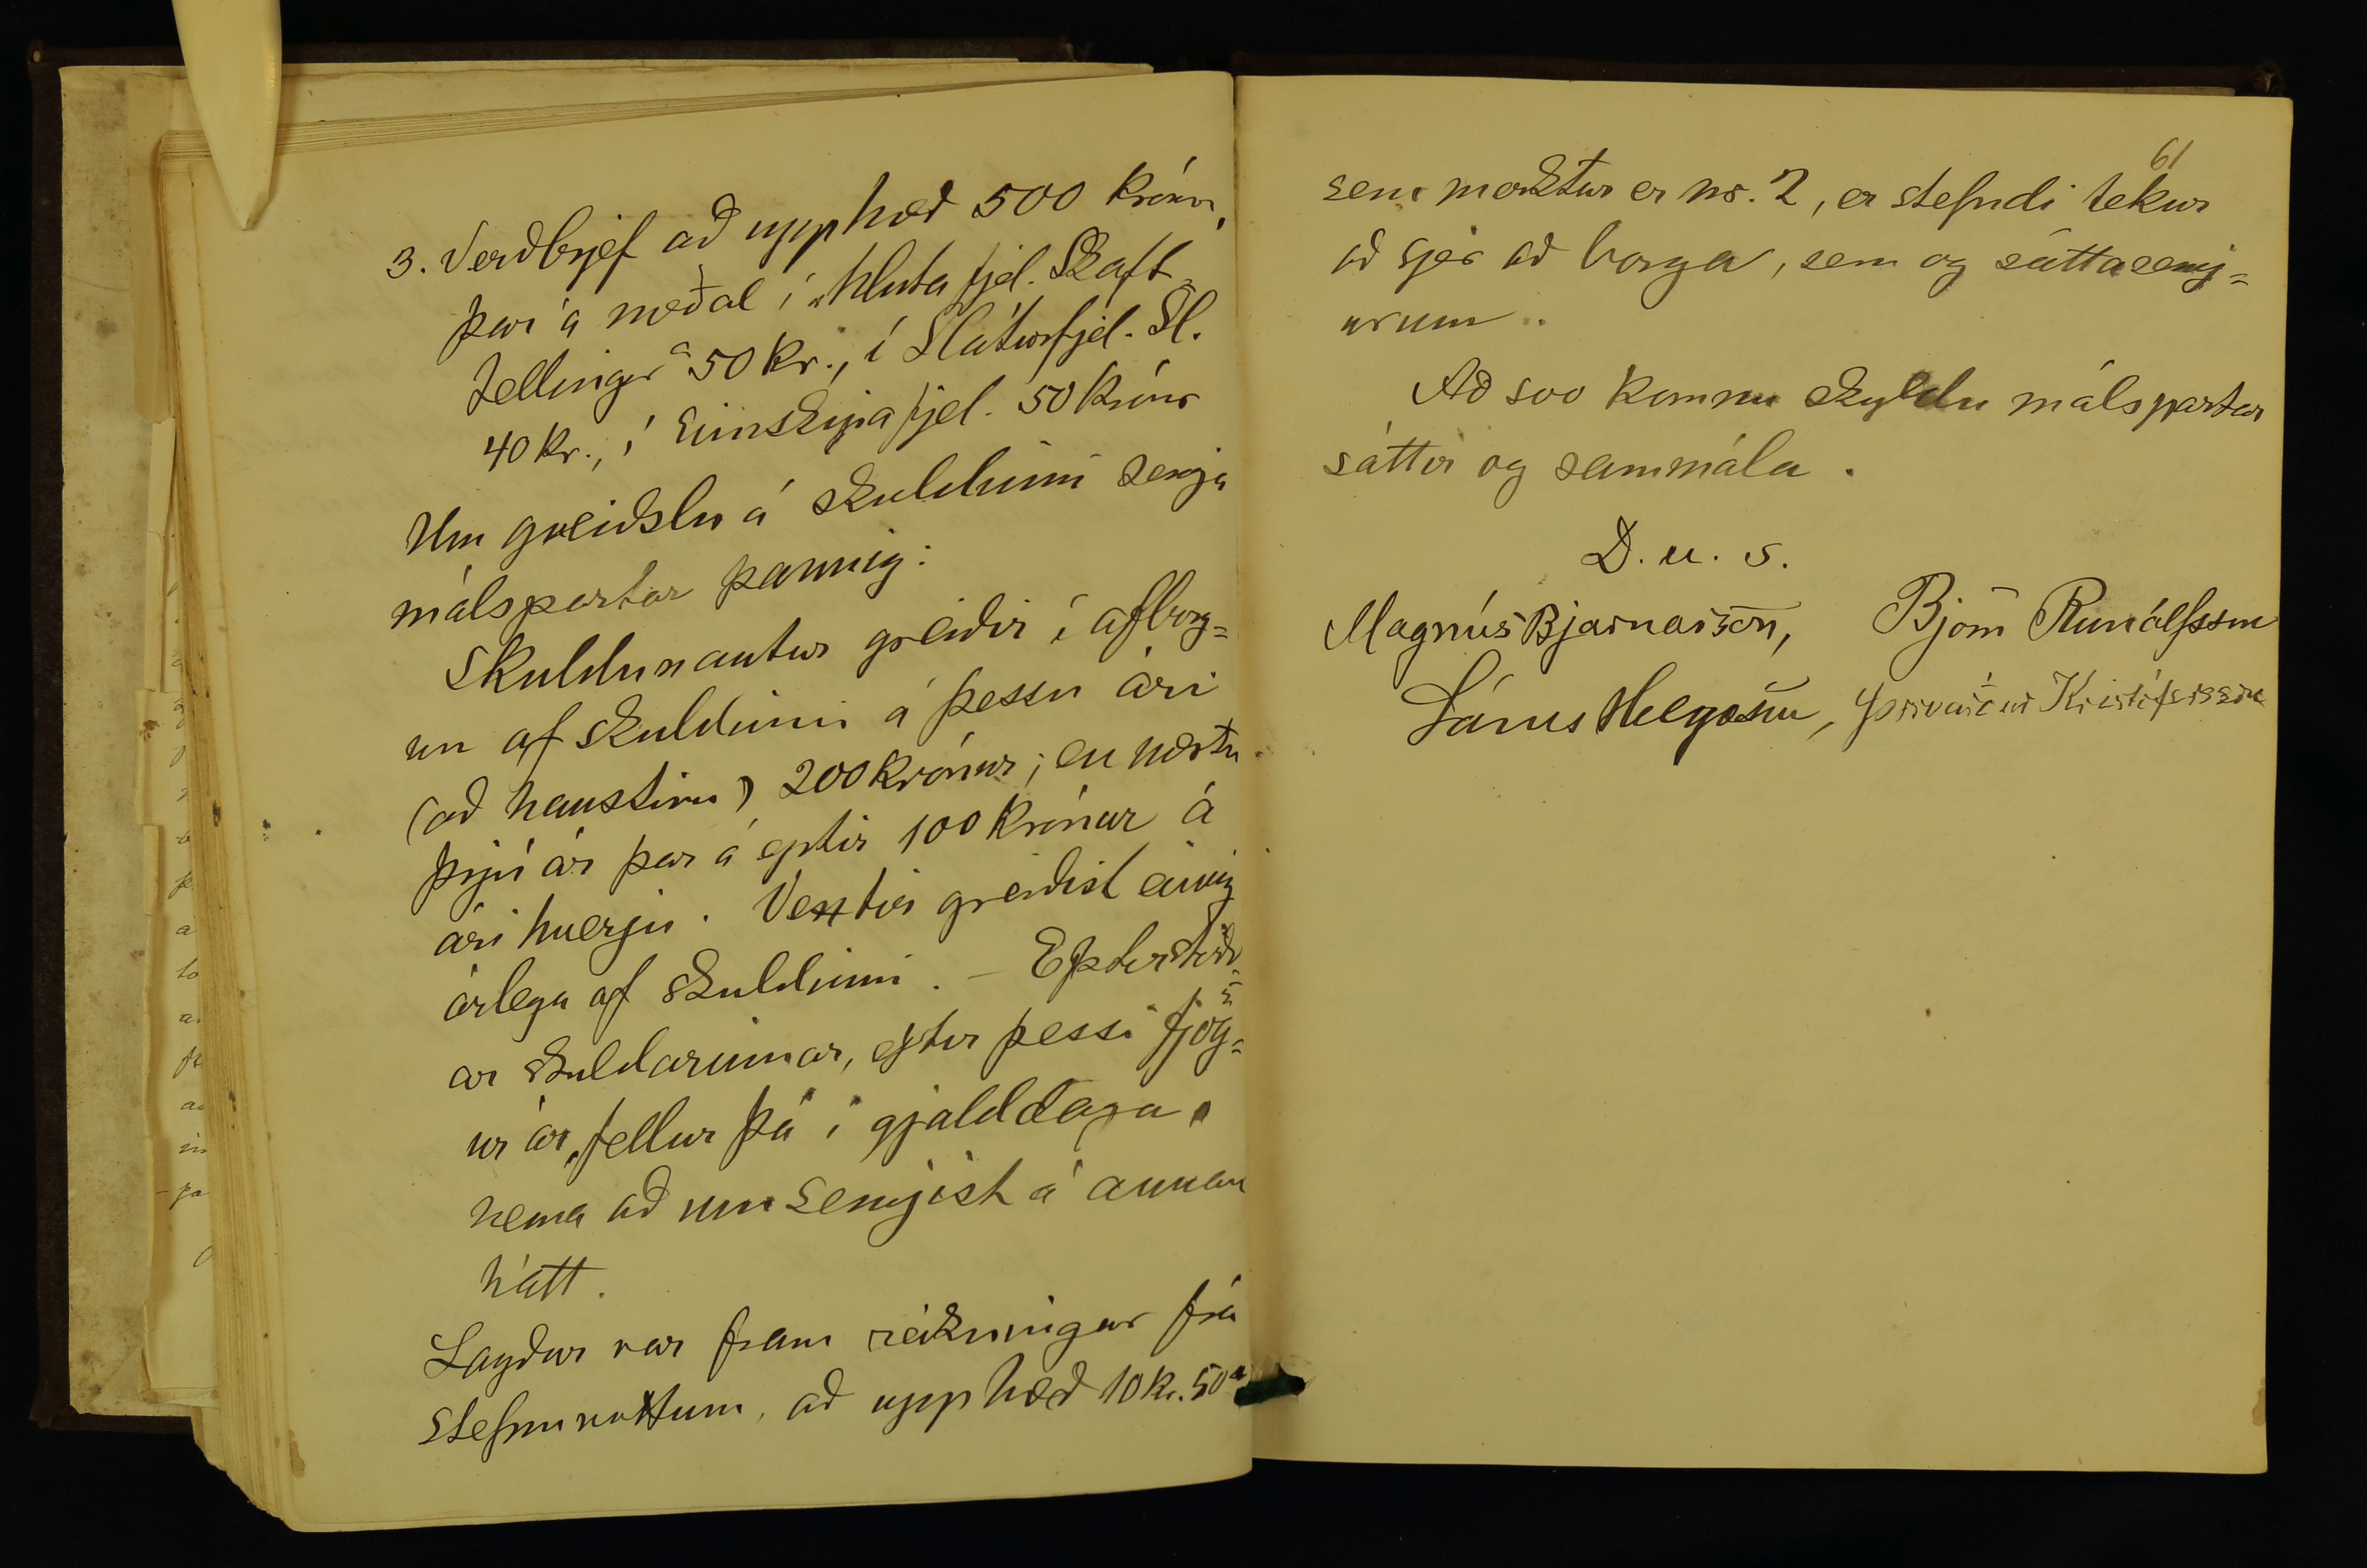 3. Verðbrjef að upphæð 500 krónur,
þar á meðal í "Hlutafjel. Skaft-
fellingur" á 50 kr., í Sláturfjel. Sl.
40 kr., í Eimskipafjel. 50 krónur
Um greiðslu á skuldinni semja
málspartar þannig:
Skuldunautur greiðir í afborg=
un af skuldinni á þessu ári
(að haustinu) 200 krónur; en næstu
þrjú ár þar á eptir 100 krónur á
ári hverju. Vextir greiðist einnig
árlega af skuldinni. - Eptirstöðv=
ar skuldarinnar, eptir þessi fjög=
ur ár, fellur þá í gjalddaga,
nema að um semjist á annan
hátt.
Lagður var fram reikningur frá
stefnuvottum, að upphæð 10 kr. 50 a
61
sem merktur er nr. 2, er stefndi tekur
að sjer að borga, sem og sáttasemj=
urum.
Að svo komnu skyldu málspartar
sáttir og sammála.
D. u. s.
Magnús Bjarnarson, Björn Runólfsson
Lárus Helgason, Þorvarður Kristófersson